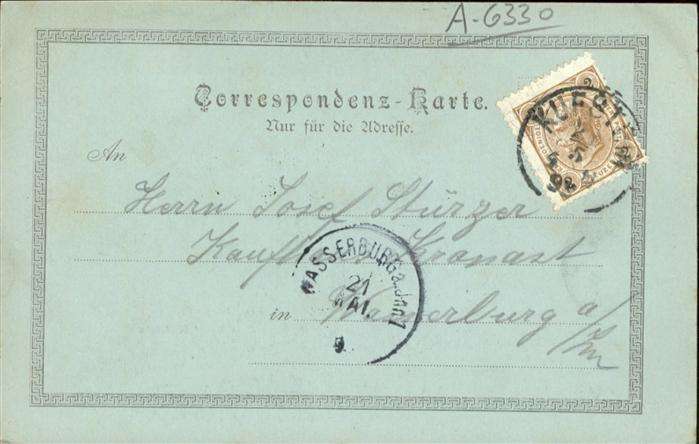 A-6330
Correspondenz-Karte.
Nur für die Adresse.
An
Herrn Josef Stürzer
Kauf Kronast
in Wasserburg a/
Inn
WASSERBURG a. Inn
21
MAI.